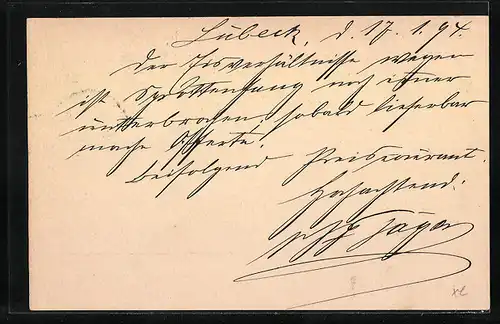 Lübeck, d. 17.1.94.
Der Eisverhältnisse wegen
ist Sprottenfang noch immer
unterbrochen; sobald lieferbar
mache Offerte.
Beifolgend Preiscourant.
Hochachtend:
Jäger